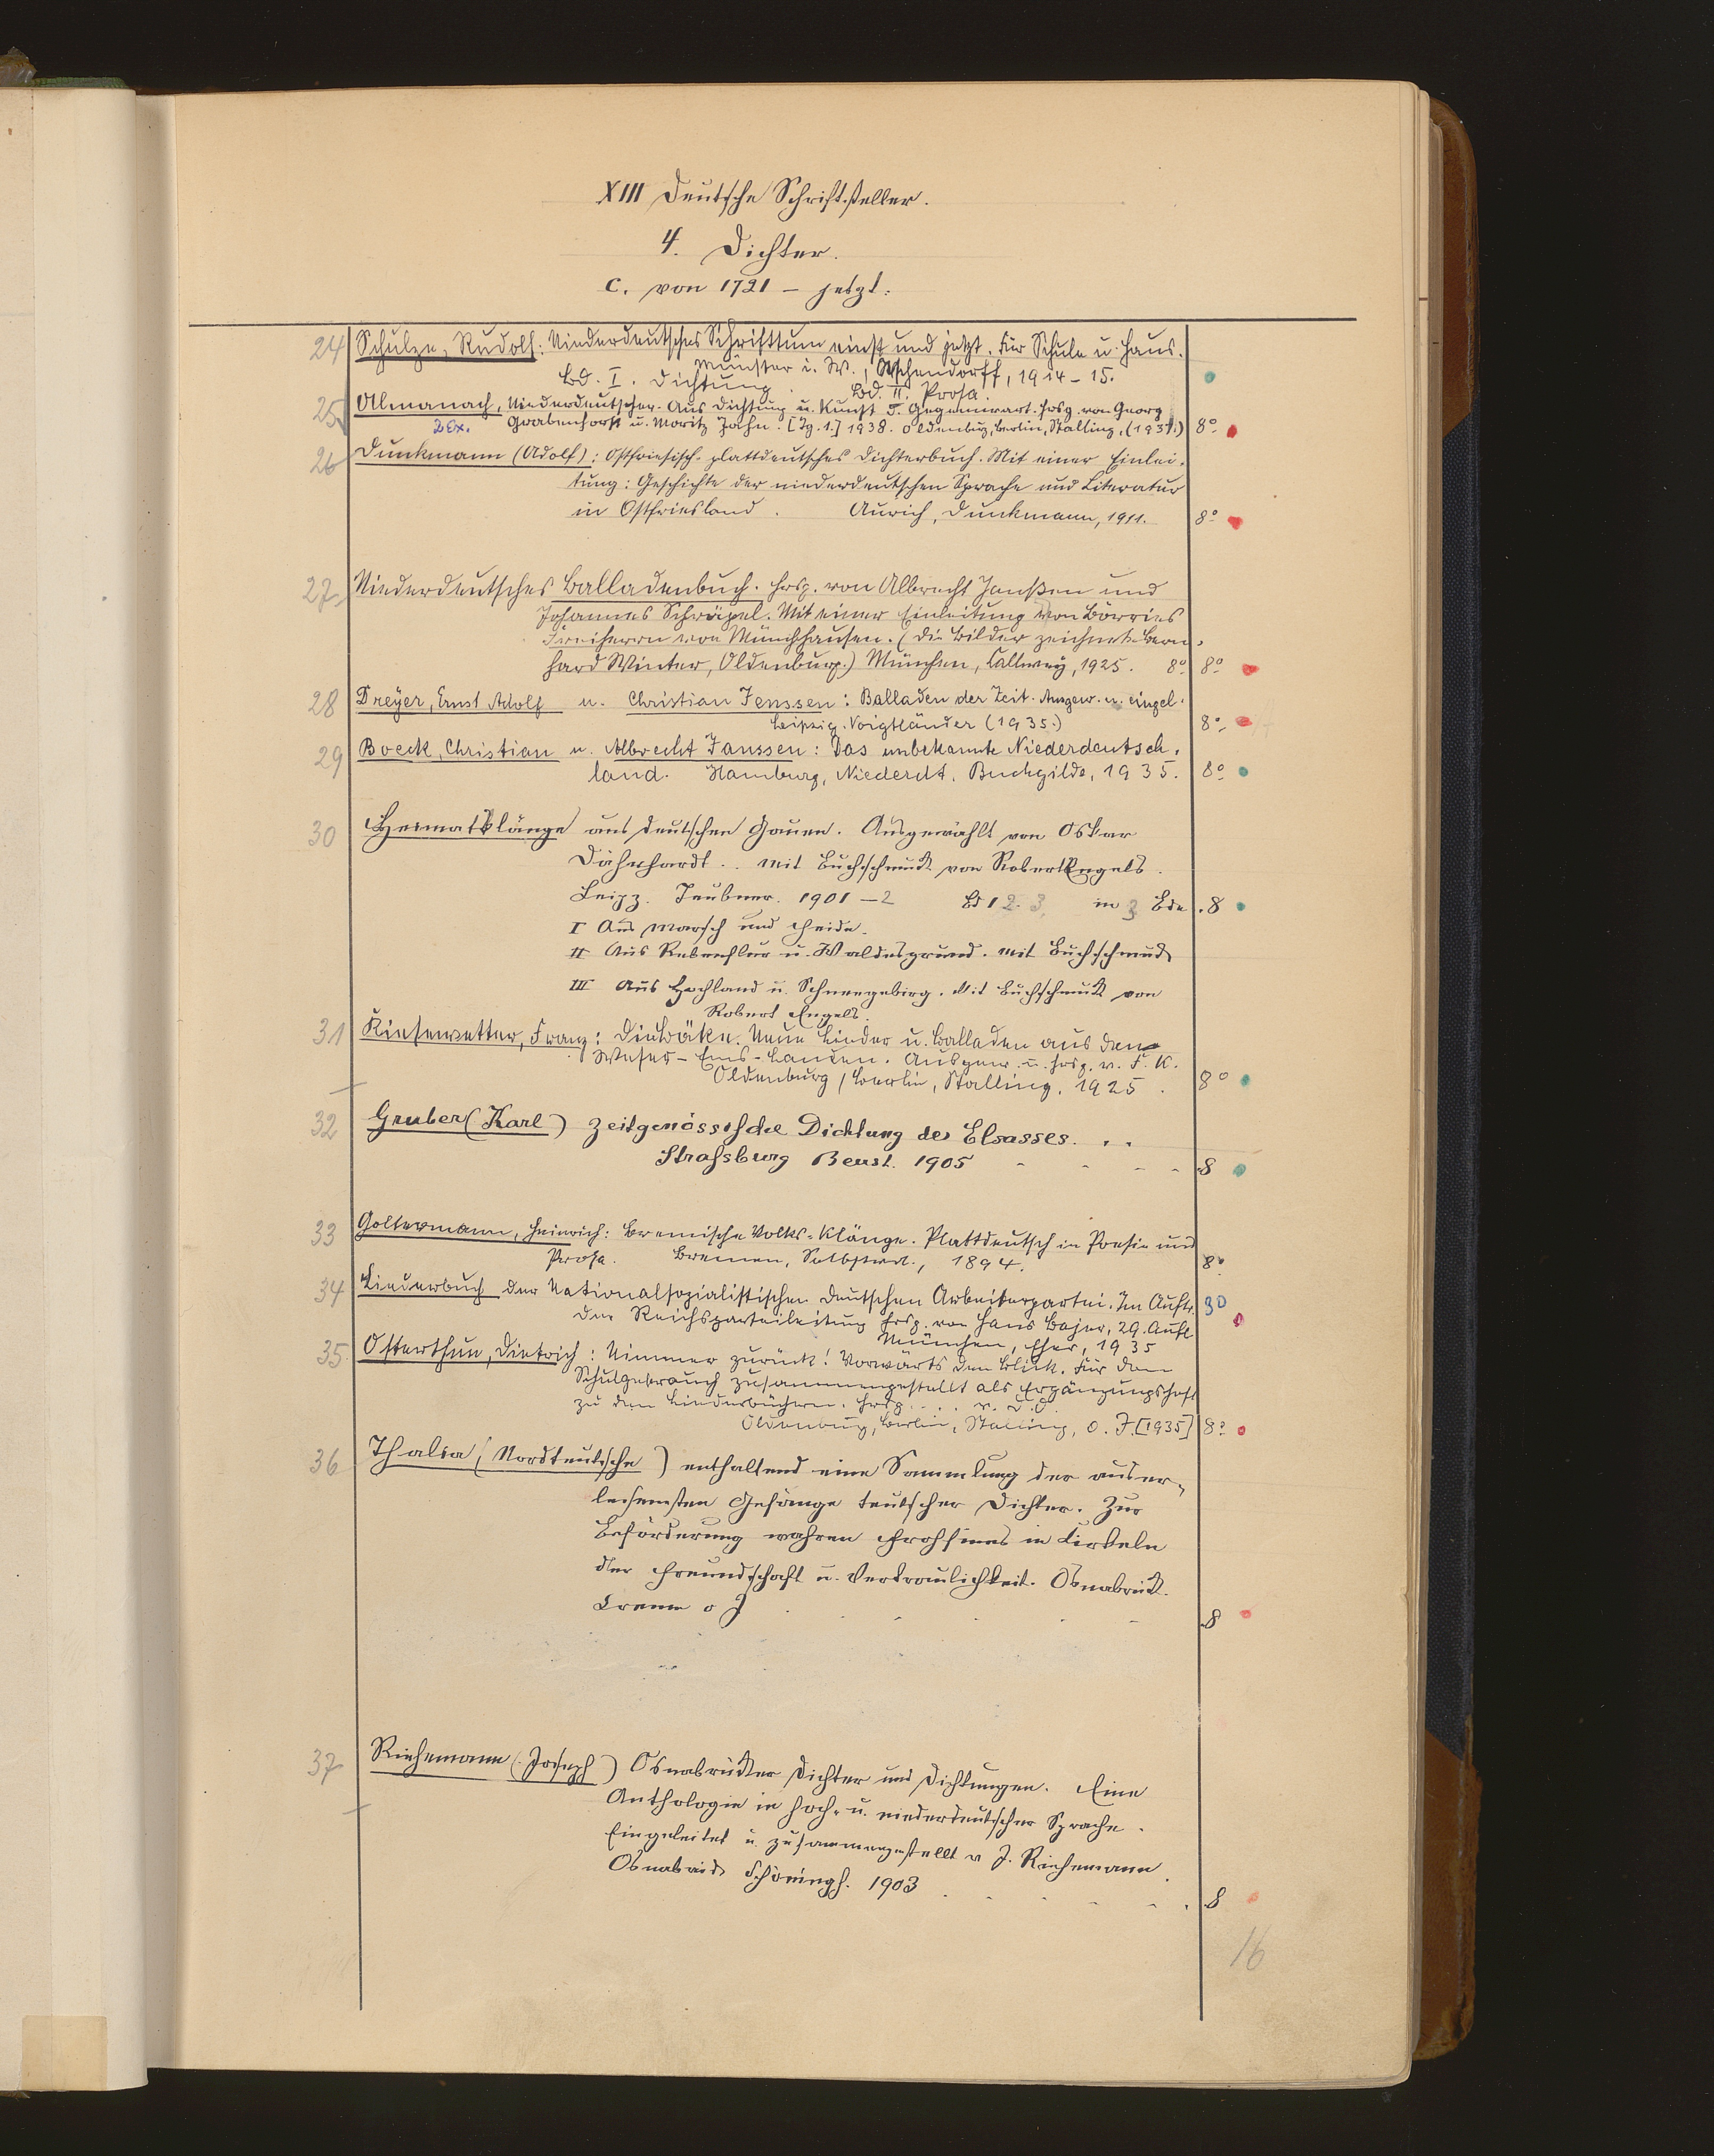 XIII Deutsche Schriftsteller.
4. Dichter.
c. von 1721 – jetzt.
24 Schulze, Rudolf: Niederdeutsches Schrifttum einst und jetzt. Für Schule u. Haus.
Münster i. W., Aschendorff, 1914–15.
Bd. I. Dichtung. Bd. II. Prosa.
25 Almanach, Niederdeutscher. Aus Dichtung u. Kunst d. Gegenwart. Hrsg. von Georg
2 Ex. Grabenhorst u. Moritz Jahn. [Jg. 1.] 1938. Oldenburg, Berlin, Stalling, (1937.) 8°
26 Dunkmann (Adolf): Ostfriesisch-plattdeutsches Dichterbuch. Mit einer Einlei-
tung: Geschichte der niederdeutschen Sprache und Literatur
in Ostfriesland. Aurich, Dunkmann, 1911. 8°
27 Niederdeutsches Balladenbuch. Hrsg. von Albrecht Janßen und
Johannes Schräpel. Mit einer Einleitung von Börries
Freiherrn von Münchhausen. (Die Bilder zeichnete Bern-
hard Winter, Oldenburg.) München, Callwey, 1925. 8° 8°
28 Dreyer, Ernst Adolf u. Christian Jenssen: Balladen der Zeit. Ausgew. u. eingel.
Leipzig, Voigtländer (1935.) 8°
29 Boeck, Christian u. Albrecht Janssen: Das unbekannte Niederdeutsch-
land. Hamburg, Niederdt. Buchgilde, 1935. 8°
30 Heimatklänge aus deutschen Gauen. Ausgewählt von Oskar
Dähnhardt. Mit Buchschmuck von Robert Engels.
Leipz. Teubner. 1901–2 Bd 1 2. 3. in 3 Bde. 8
I Aus Marsch und Heide.
II Aus Rebenflur u. Waldesgrund. Mit Buchschmuck
III Aus Hochland u. Schneegebirg. Mit Buchschmuck von
Robert Engels.
31 Kiesewetter, Franz: Die Bäke. Neue Lieder u. Balladen aus den
Weser-Ems-Landen. Ausgew. u. hrsg. v. F. K.
Oldenburg / Berlin, Stalling, 1925. 8°
32 Gruber (Karl) Zeitgenössische Dichtung des Elsasses. . .
Strassburg Beust. 1905 8
33 Goltermann, Heinrich: Bremische Volks-Klänge. Plattdeutsch in Poesie und
Prosa. Bremen, Selbstverl., 1894. 8°
34 Liederbuch der Nationalsozialistischen Deutschen Arbeiterpartei. Im Auftr.
der Reichsparteileitung hrsg. von Hans Bajer, 29. Aufl. 30
München, Eher, 1935
35. Osterthun, Dietrich: Nimmer zurück! Vorwärts den Blick. Für den
Schulgebrauch zusammengestellt als Ergänzungsheft
zu den Liederbüchern. Hrsg. . . . v. D. O.
Oldenburg, Berlin, Stalling, o. J. [1935] 8°
36 Thalia (Nordteutsche) enthaltend eine Sammlung der auser-
lesensten Gesänge teutscher Dichter. Zur
Beförderung wahren Frohsinns in Cirkeln
der Freundschaft u. Vertraulichkeit. Osnabrück.
o J 8
37 Riehemann (Joseph) Osnabrücker Dichter und Dichtungen. Eine
Anthologie in hoch- u. niederdeutscher Sprache.
Eingeleitet u. zusammengestellt v J. Riehemann.
Osnabrück Schöningh. 1903 8
16